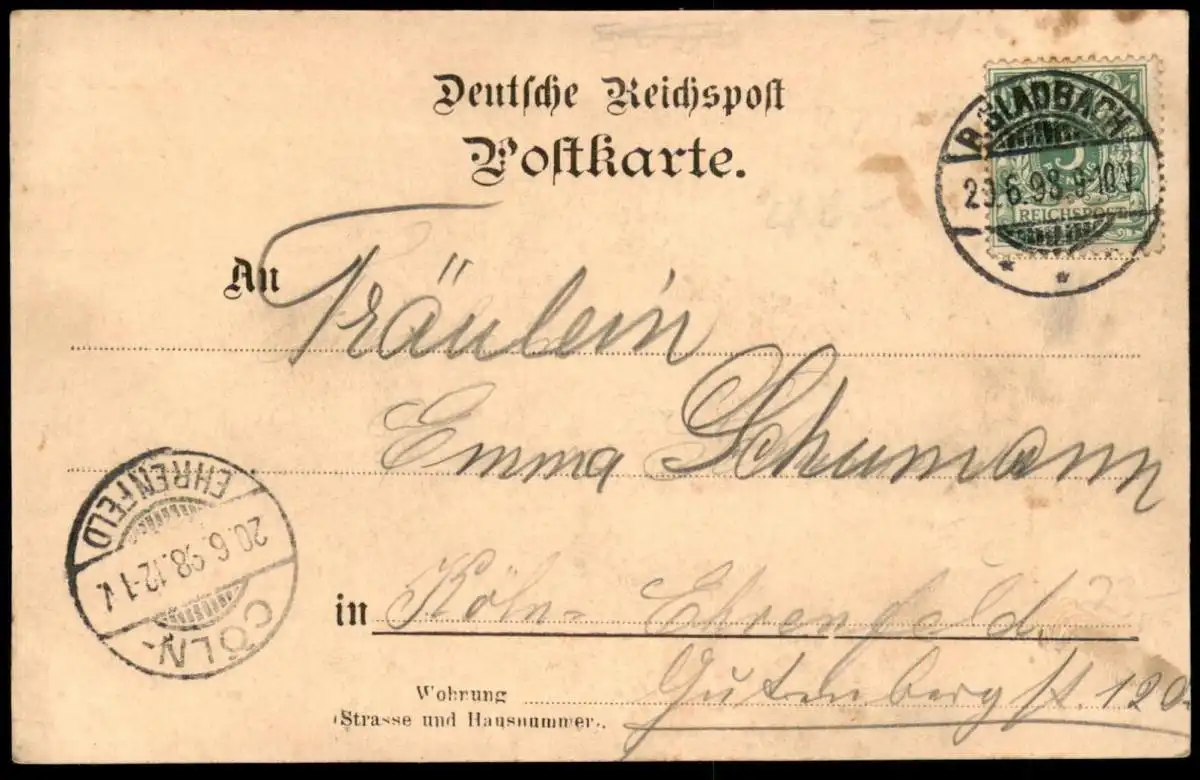 Deutsche Reichspost
Postkarte.
B.GLADBACH
5
REICHSPOST
20.6.98.9-10V.
An Fräulein
Emma Schumann
EHRENFELD
20.6.98.12-1 V.
CÖLN-
in Köln-Ehrenfeld
Wohnung
(Strasse und Hausnummer)
Gutenbergst. 120